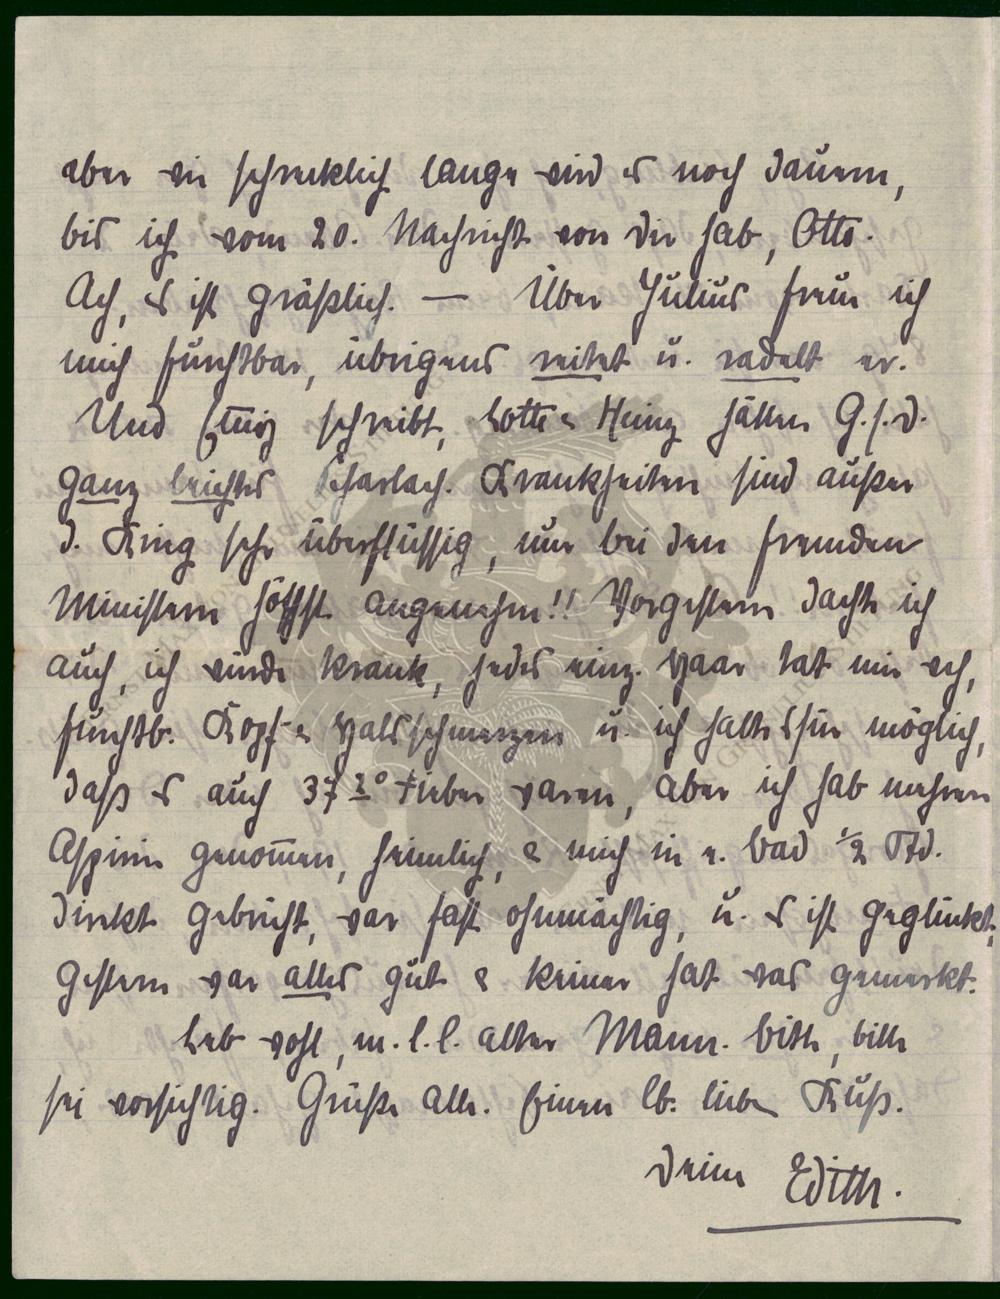 aber wie schrecklich lange wird es noch dauern,
bis ich vom 20. Nachricht von dir hab, Otto.
Ach, es ist gräßlich. — Über Julius freue ich
mich furchtbar, übrigens reitet u. radelt er.
Und schreibt, Lotte & Heinz hätten G. s. d.
ganz leichtes Scharlach. Krankheiten sind außer
d. Krieg sehr überflüssig, nur bei den fremden
Ministern höchst angenehm!! Vorgestern dachte ich
auch, ich würde krank, jedes einz. Haar tat mir weh,
furchtb. Kopf- & Halsschmerzen u. ich halte es für möglich,
daß es auch 37 2° Fieber waren, aber ich hab mehrere
Aspirin genom̅en, heimlich, & mich in e. Bad ½ Std.
direkt gebrüht, war fast ohnmächtig, u. es ist geglückt,
gestern war alles gut & keiner hat was gemerkt.
Leb wohl, m. l. l. alter Mann. Bitte, bitte
sei vorsichtig. Grüße alle. Einen lb. lieben Kuß.
Deine Edith.